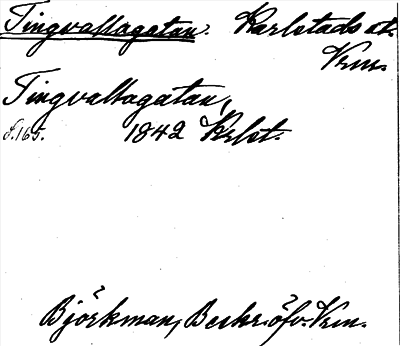 Tingvallagatan. Karlstads st.
Vrm.
Tingvallagatan,
s.165. 1842 Krlst.
Björkman, Beskr. öfv. Vrm.